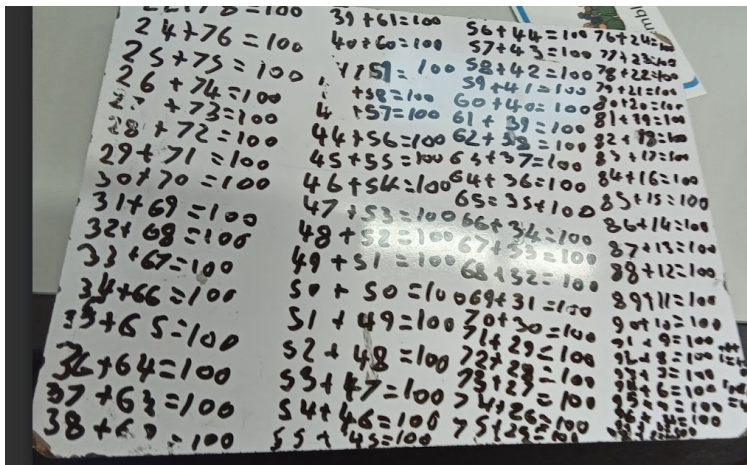 24+76=100
25+75=100
26+74=100
+73=100
28+72=100
29+71=100
30+70=100
31+69=100
32+68=100
33+67=100
34+66=100
35+65=100
36+64=100
37+63=100
38+6 =100
39+61=100
40+60=100
+59=100
+58=100
4 +57=100
44+56=100
45+55=100
46+54=100
47+53=100
48+52=100
49+51=100
50+50=100
51+49=100
52+48=100
53+47=100
54+46=100
55+45=100
56+44=100
57+43=100
58+42=100
59+41=100
60+40=100
61+39=100
62+38=100
63+37=100
64+36=100
65=35+100
66+34=100
67+33=100
68+32=100
69+31=100
70+30=100
71+29=100
72+28=100
73+27=100
74+26=100
75+25=100
76+24=100
77+23=100
78+22=100
79+21=100
80+20=100
81+19=100
82+18=100
83+17=100
84+16=100
85+15=100
86+14=100
87+13=100
88+12=100
89+11=100
90+10=100
91+9=100
92+8=100